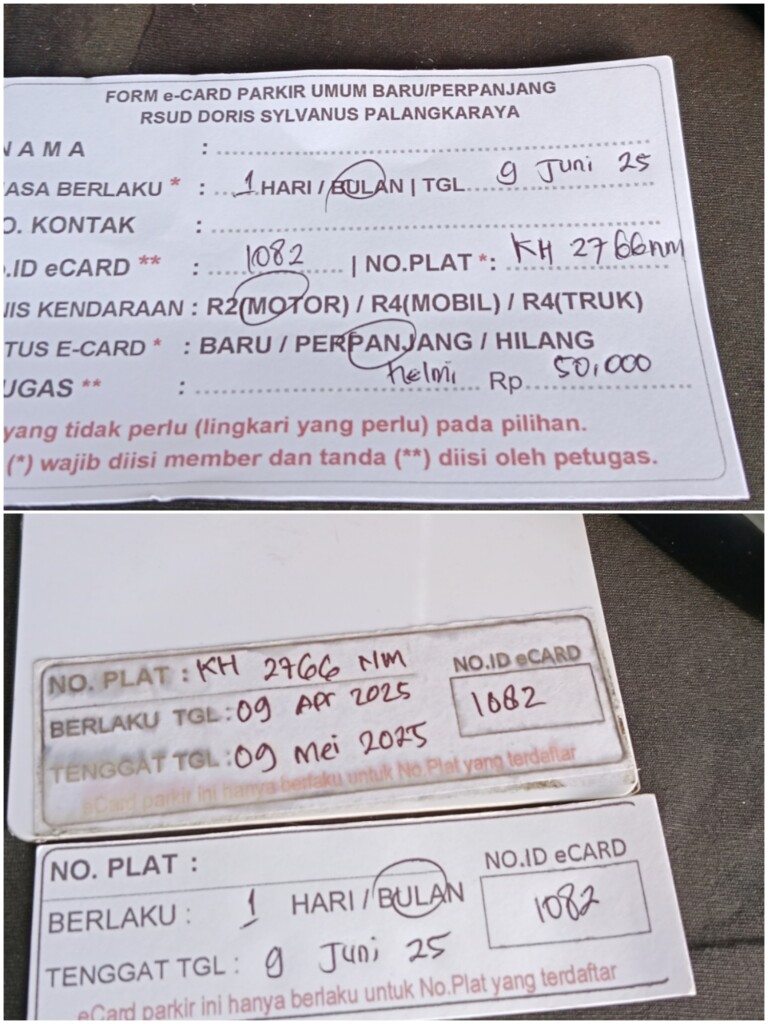 FORM e-CARD PARKIR UMUM BARU/PERPANJANG
RSUD DORIS SYLVANUS PALANGKARAYA
NAMA :
ASA BERLAKU * : 1 HARI / BULAN | TGL. 9 Juni 25
O. KONTAK :
.ID eCARD ** : 1082 | NO.PLAT *: KH 2766nm
NIS KENDARAAN : R2(MOTOR) / R4(MOBIL) / R4(TRUK)
TUS E-CARD * : BARU / PERPANJANG / HILANG
UGAS ** : helmi Rp. 50.000
yang tidak perlu (lingkari yang perlu) pada pilihan.
(*) wajib diisi member dan tanda (**) diisi oleh petugas.
NO. PLAT : KH 2766 NM
NO.ID eCARD
BERLAKU TGL: 09 Apr 2025
1082
TENGGAT TGL: 09 Mei 2025
eCard parkir ini hanya berlaku untuk No.Plat yang terdaftar
NO. PLAT :
NO.ID eCARD
BERLAKU : 1 HARI / BULAN
1082
TENGGAT TGL : 9 Juni 25
eCard parkir ini hanya berlaku untuk No.Plat yang terdaftar